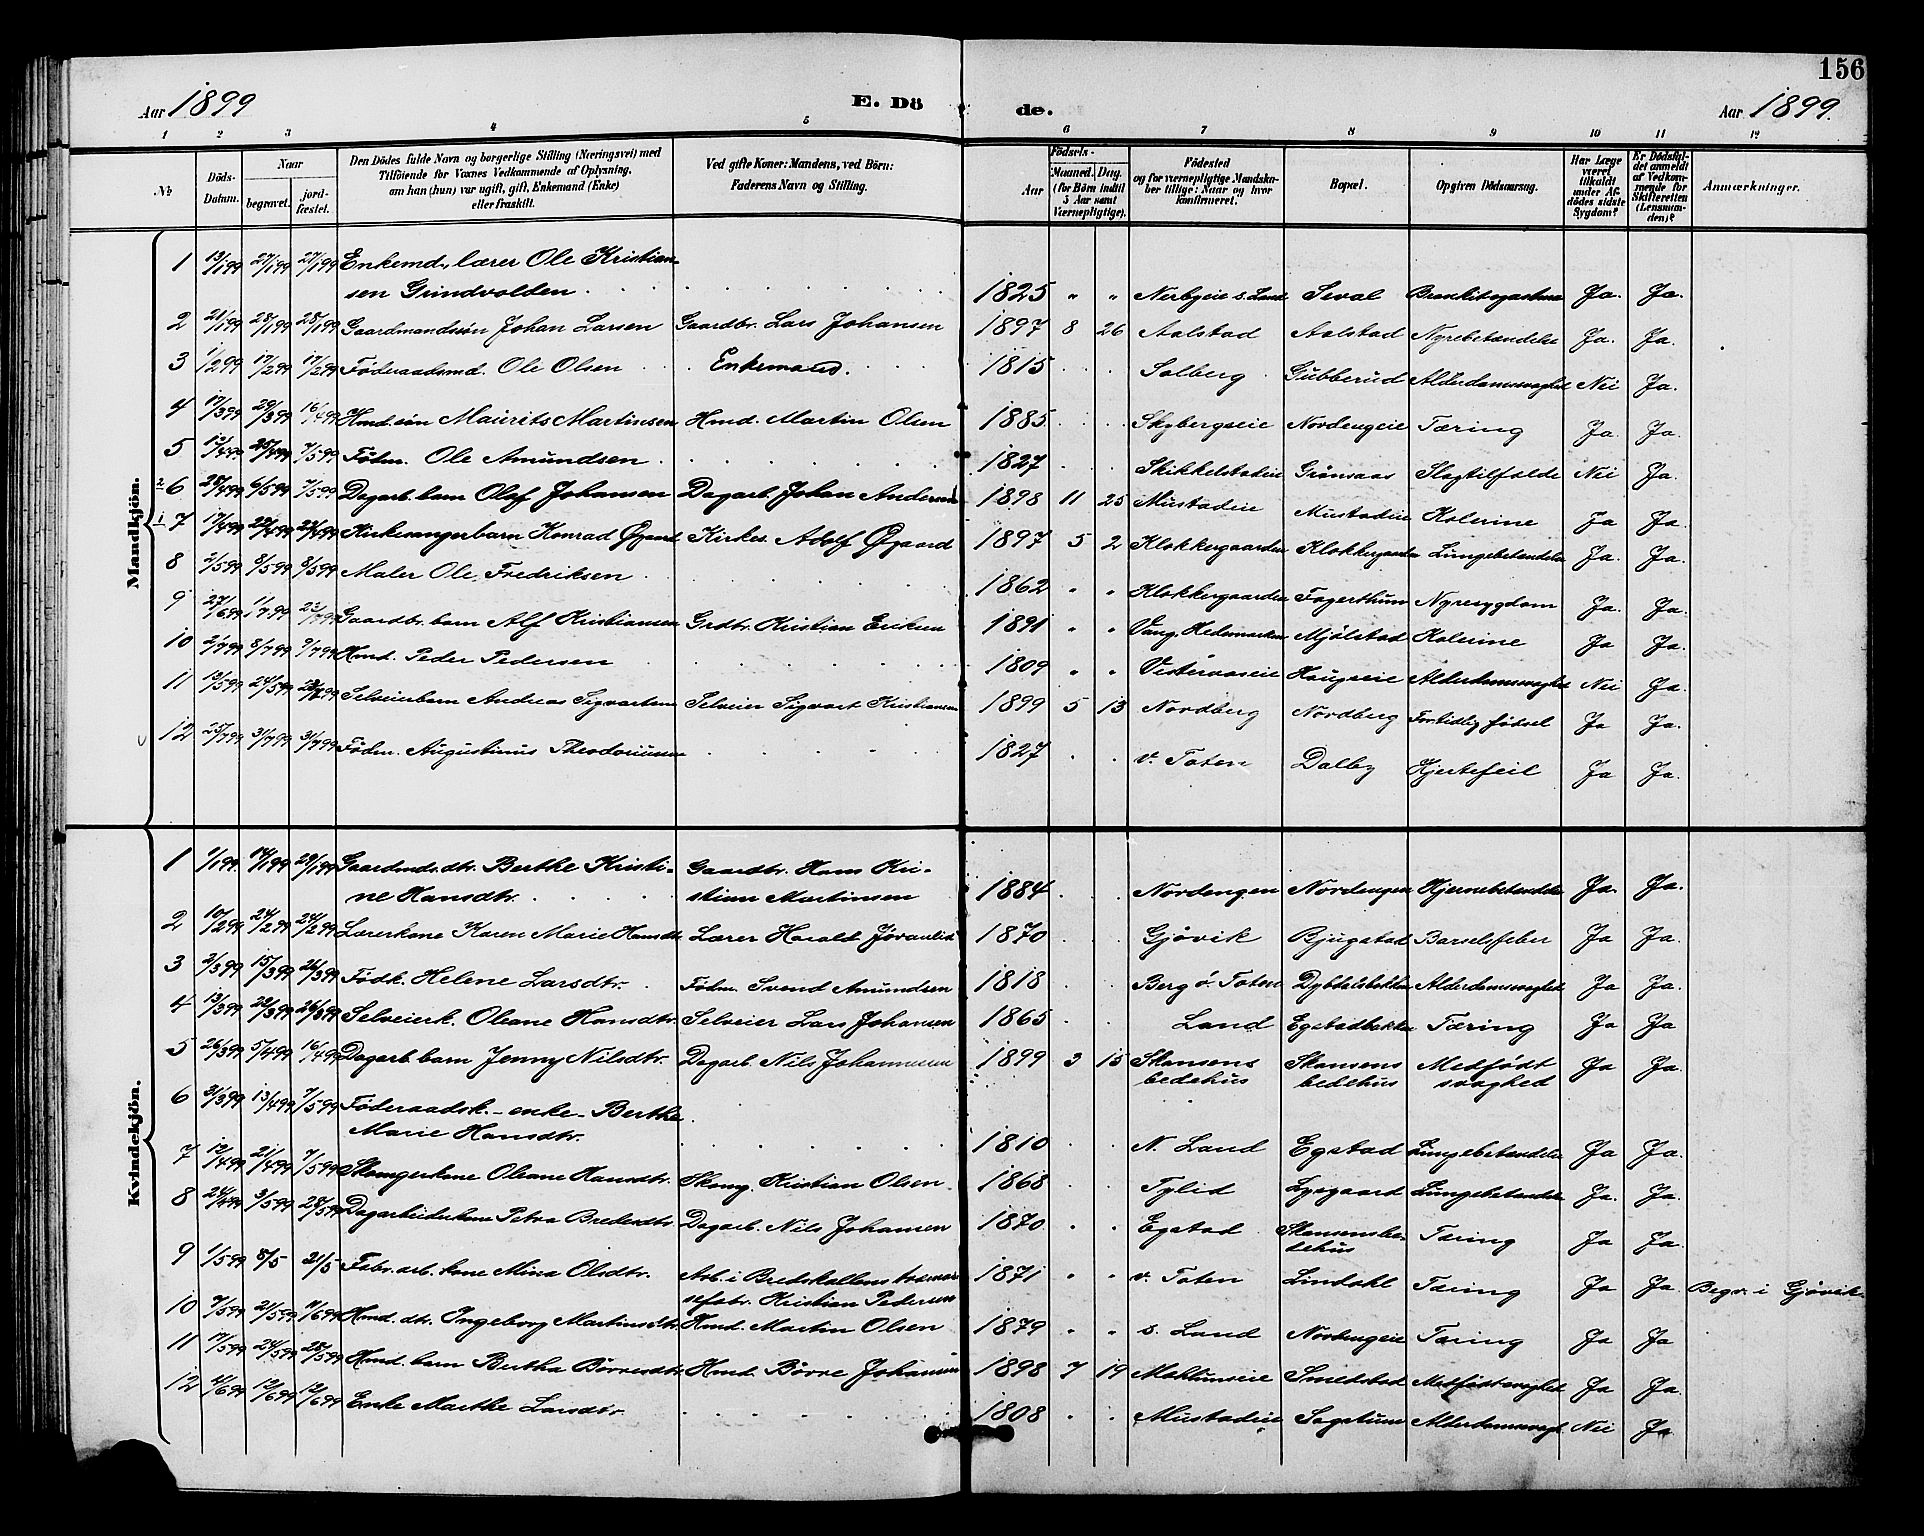 156
Aar 1899 E. Dö de. Aar 1899.
1 2 3 4 5 6 7 8 9 10 11 12
№ Döds-Datum. Naar begravet. jordfæstet. Den Dödes fulde Navn og borgerlige Stilling (Næringsvei) med Tilföiende for Voxnes Vedkommende af Oplysning, om han (hun) var ugift, gift, Enkemand (Enke) eller fraskilt. Ved gifte Koner: Mandens, ved Börn: Faderens Navn og Stilling. Födsels- Aar Maaned. Dag. (for Börn indtil 5 Aar samt Værnepligtige). Födested og for værnepligtige Mandskaber tillige: Naar og hvor konfirmeret. Bopæl. Opgiven Dödsaarsag. Har Læge været tilkaldt under Afdödes sidste Sygdom? Er Dödsfaldet anmeldt af Vedkommende for Skifteretten (Lensmanden)? Anmærkninger.
Mandkjön.
1 13/1 99 27/1 99 27/1 99 Enkemd., lærer Ole Kristian-
sen Grindvolden 1825 " " Nerbyeie s. Land Seval Ja. Ja.
2 21/1 99 28/1 99 28/1 99 Gaardmandssøn Johan Larsen Gaardbr. Lars Johansen 1897 8 26 Aalstad Aalstad Nyrebetændelse Ja. Ja.
3 1/2 99 17/2 99 17/2 99 Føderaadsmd. Ole Olsen Enkemand. 1815 Solberg Gubberud Alderdomssvaghed Nei Ja.
4 17/3 99 29/3 99 16/4 99 Hmd. søn Maurits Martinsen Hmd. Martin Olsen 1885 Skybergseie Nordengeie Tæring Ja. Ja.
5 12/4 99 25/4 99 7/5 99 Fødm. Ole Amundsen 1827 Skikkelstadeie Grønaas Slagtilfælde Nei Ja.
2 6 28/4 99 6/5 99 7/5 99 Dagarb. barn Olaf Johansen Dagarb. Johan Andersen 1898 11 25 Mustadeie Mustadeie Kolerine Ja Ja.
1 7 17/4 99 22/4 99 Kirkesangerbarn Konrad Øgaard Kirkes. Adolf Øgaard 1897 5 2 Klokkergaarden Klokkergaarden Lungebetændelse Ja. Ja.
8 2/5 99 8/5 99 8/5 99 Maler Ole Fredriksen 1862 " " Klokkergaarden Fagerthun Nyresygdom Ja. Ja.
9 27/6 99 1/7 99 Gaardbr. barn Alf Kristiansen Grdbr. Kristian Eriksen 1891 " " Vang, Hedemarken Mjølstad Kolerine Ja Ja.
10 2/7 99 8/7 99 9/7 99 Hmd. Peder Pedersen 1809 " " Vesteraaseie Haugseie Alderdomssvaghed Nei Ja.
11 13/5 99 24/5 99 Selveierbarn Andreas Sigvartsen Selveier Sigvart Kristiansen 1899 5 13 Nordberg Nordberg Fortidlig fødsel Ja Ja.
12 25/7 99 31/7 99 31/7 99 Fødm. Augustinus Theodoriussen 1827 v. Toten Dalby Hjertefeil Ja Ja.
Kvindekjön.
1 1/1 99 14/1 99 29/1 99 Gaardmds. dtr. Berthe Kristi- Gaardbr. Hans Kri-
ne Hansdtr. stian Martinsen 1884 Nordengen Nordengen Hjernebetændelse Ja. Ja.
2 10/2 99 24/2 99 24/2 99 Lærerkone Karen Marie Hansdtr. Lærer Harald 1870 Gjøvik Bjugstad Barselfeber Ja Ja.
3 2/3 99 15/3 99 26/3 99 Fødk. Helene Larsdtr. Fødm. Svend Amundsen 1818 Berg ø. Toten Dybdalsbakken Alderdomssvaghed Ja Ja.
4 13/3 99 22/3 99 26/3 99 Selveierk. Oleane Hansdtr. Selveier Lars Johansen 1865 Land Egstadbakke Tæring Ja Ja
5 26/3 99 5/4 99 16/4 99 Dagarb. barn Jenny Nilsdtr. Dagarb. Nils Johannesen 1899 3 15 Skansens Skansens Medfødt Ja Ja.
bedehus bedehus svaghed
6 31/3 99 13/4 99 7/5 99 Føderaadsk. - enke - Berthe
Marie Hansdtr. 1810 N. Land Egstad Lungebetændelse Ja Ja.
7 12/4 99 21/4 99 7/5 99 Skomgerkone Oleane Hansdtr. Skomg. Kristian Olsen 1868 Tylid Lysgaard Lungebetændelse Ja. Ja.
8 24/4 99 3/5 99 28/5 99 Dagarbeiderkone Petra Bredesdtr. Dagarb. Nils Johansen 1870 Egstad Skansensbe- Tæring Ja Ja.
dehus
9 1/5 99 8/5 21/5 Fabr. arb. kone Mina Olsdtr. Arb. i 1871 " " v. Toten Lindahl Tæring Ja Ja Begr. i Gjøvik.
Kristian Pedersen
10 7/5 99 21/5 99 Hmd. dtr. Ingeborg Martinsdtr. Hmd. Martin Olsen 1879 " " s. Land Nordengeie Tæring Ja Ja
11 17/5 99 24/5 99 28/5 99 Hmd. barn Bertha Børresdtr. Hmd. Børre Johansen 1898 7 19 Mæhlumseie Smedstad Medfødt svaghed Ja Ja.
12 4/6 99 12/6 99 12/6 99 Enke Marthe Larsdtr. 1808 Mustadeie Sagstuen Alderdomssvagh. Nei Ja